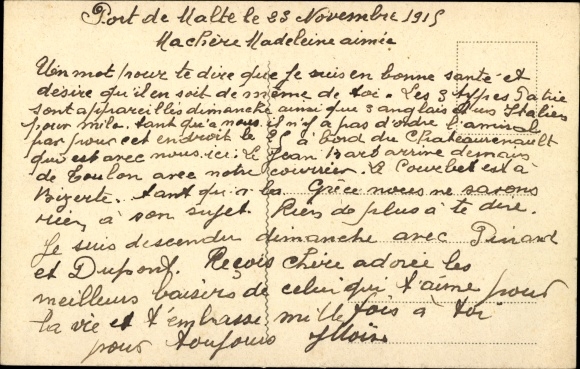 Port de Malte le 23 Novembre 1915
Ma chère Madeleine aimée
Un mot pour te dire que je suis en bonne santé et
désire qu'il en soit de même de toi. Les 3 types Patrie
sont appareillés dimanche ainsi que 3 anglais plus Italiens
pour Milo. tant qu'a nous il n'y a pas d'ordre l'amiral
par pour cet endroit le est à bord du Chateaurenault
qui est avec nous ici. Le Jean Bart arrive demain
de Toulon avec notre courrier. Le Courbet est à
Bizerte. tant qu'a la Grèce nous ne savons
rien à son sujet. Rien de plus à te dire.
Je suis descendu dimanche avec Pinard
et Dupont. Reçois chère adorée les
meilleurs baisers de celui qui t'aime pour
la vie et t'embrasse mille fois à toi
pour toujours